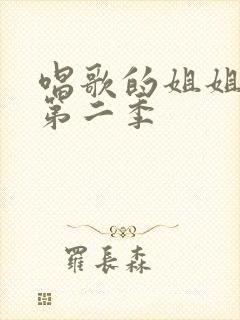 唱歌的姐姐
第二季
羅長森